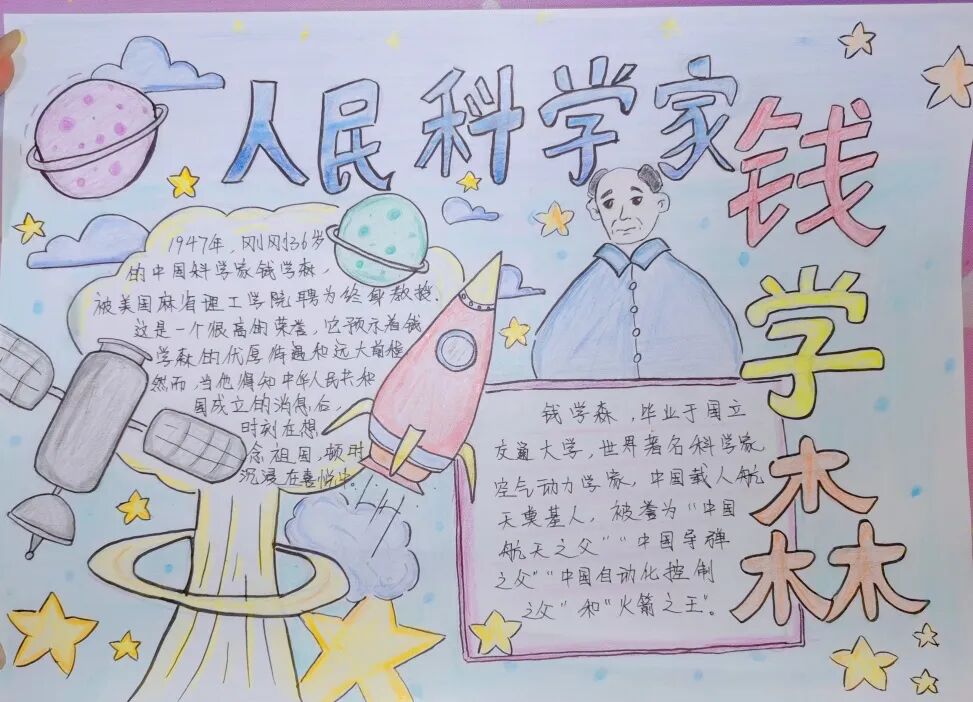 人民科学家
钱学森
1947年，刚刚36岁
的中国科学家钱学森，
被美国麻省理工学院聘为终身教授.
这是一个很高的荣誉，它预示着钱
学森的优厚待遇和远大前程
然而，当他得知中华人民共和
国成立的消息后，
时刻在想
念祖国，顿时
沉浸在喜悦中。
钱学森，毕业于国立
交通大学，世界著名科学家
空气动力学家，中国载人航
天奠基人，被誉为“中国
航天之父”“中国导弹
之父”“中国自动化控制
之父”和“火箭之王”。